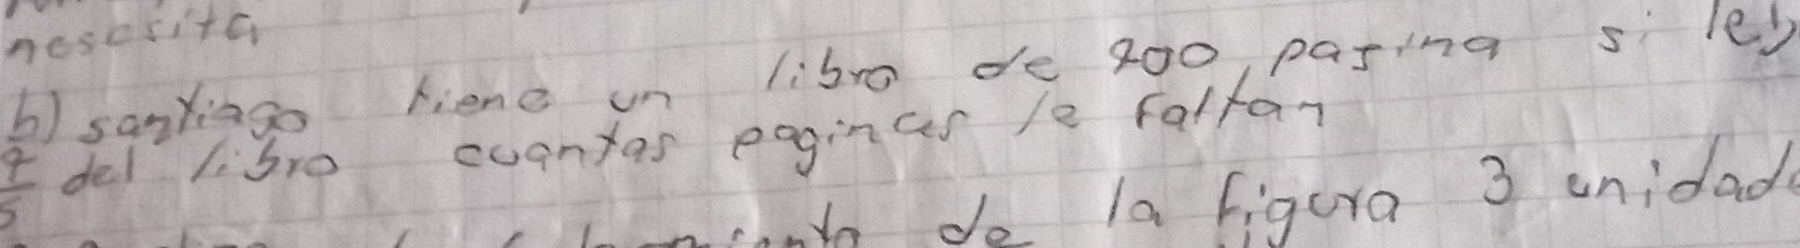 nescsita
b) santiago tiene un libro de 200 pagina si ley
4/5 del libro cuantas paginas le faltan
de la figura 3 unidad